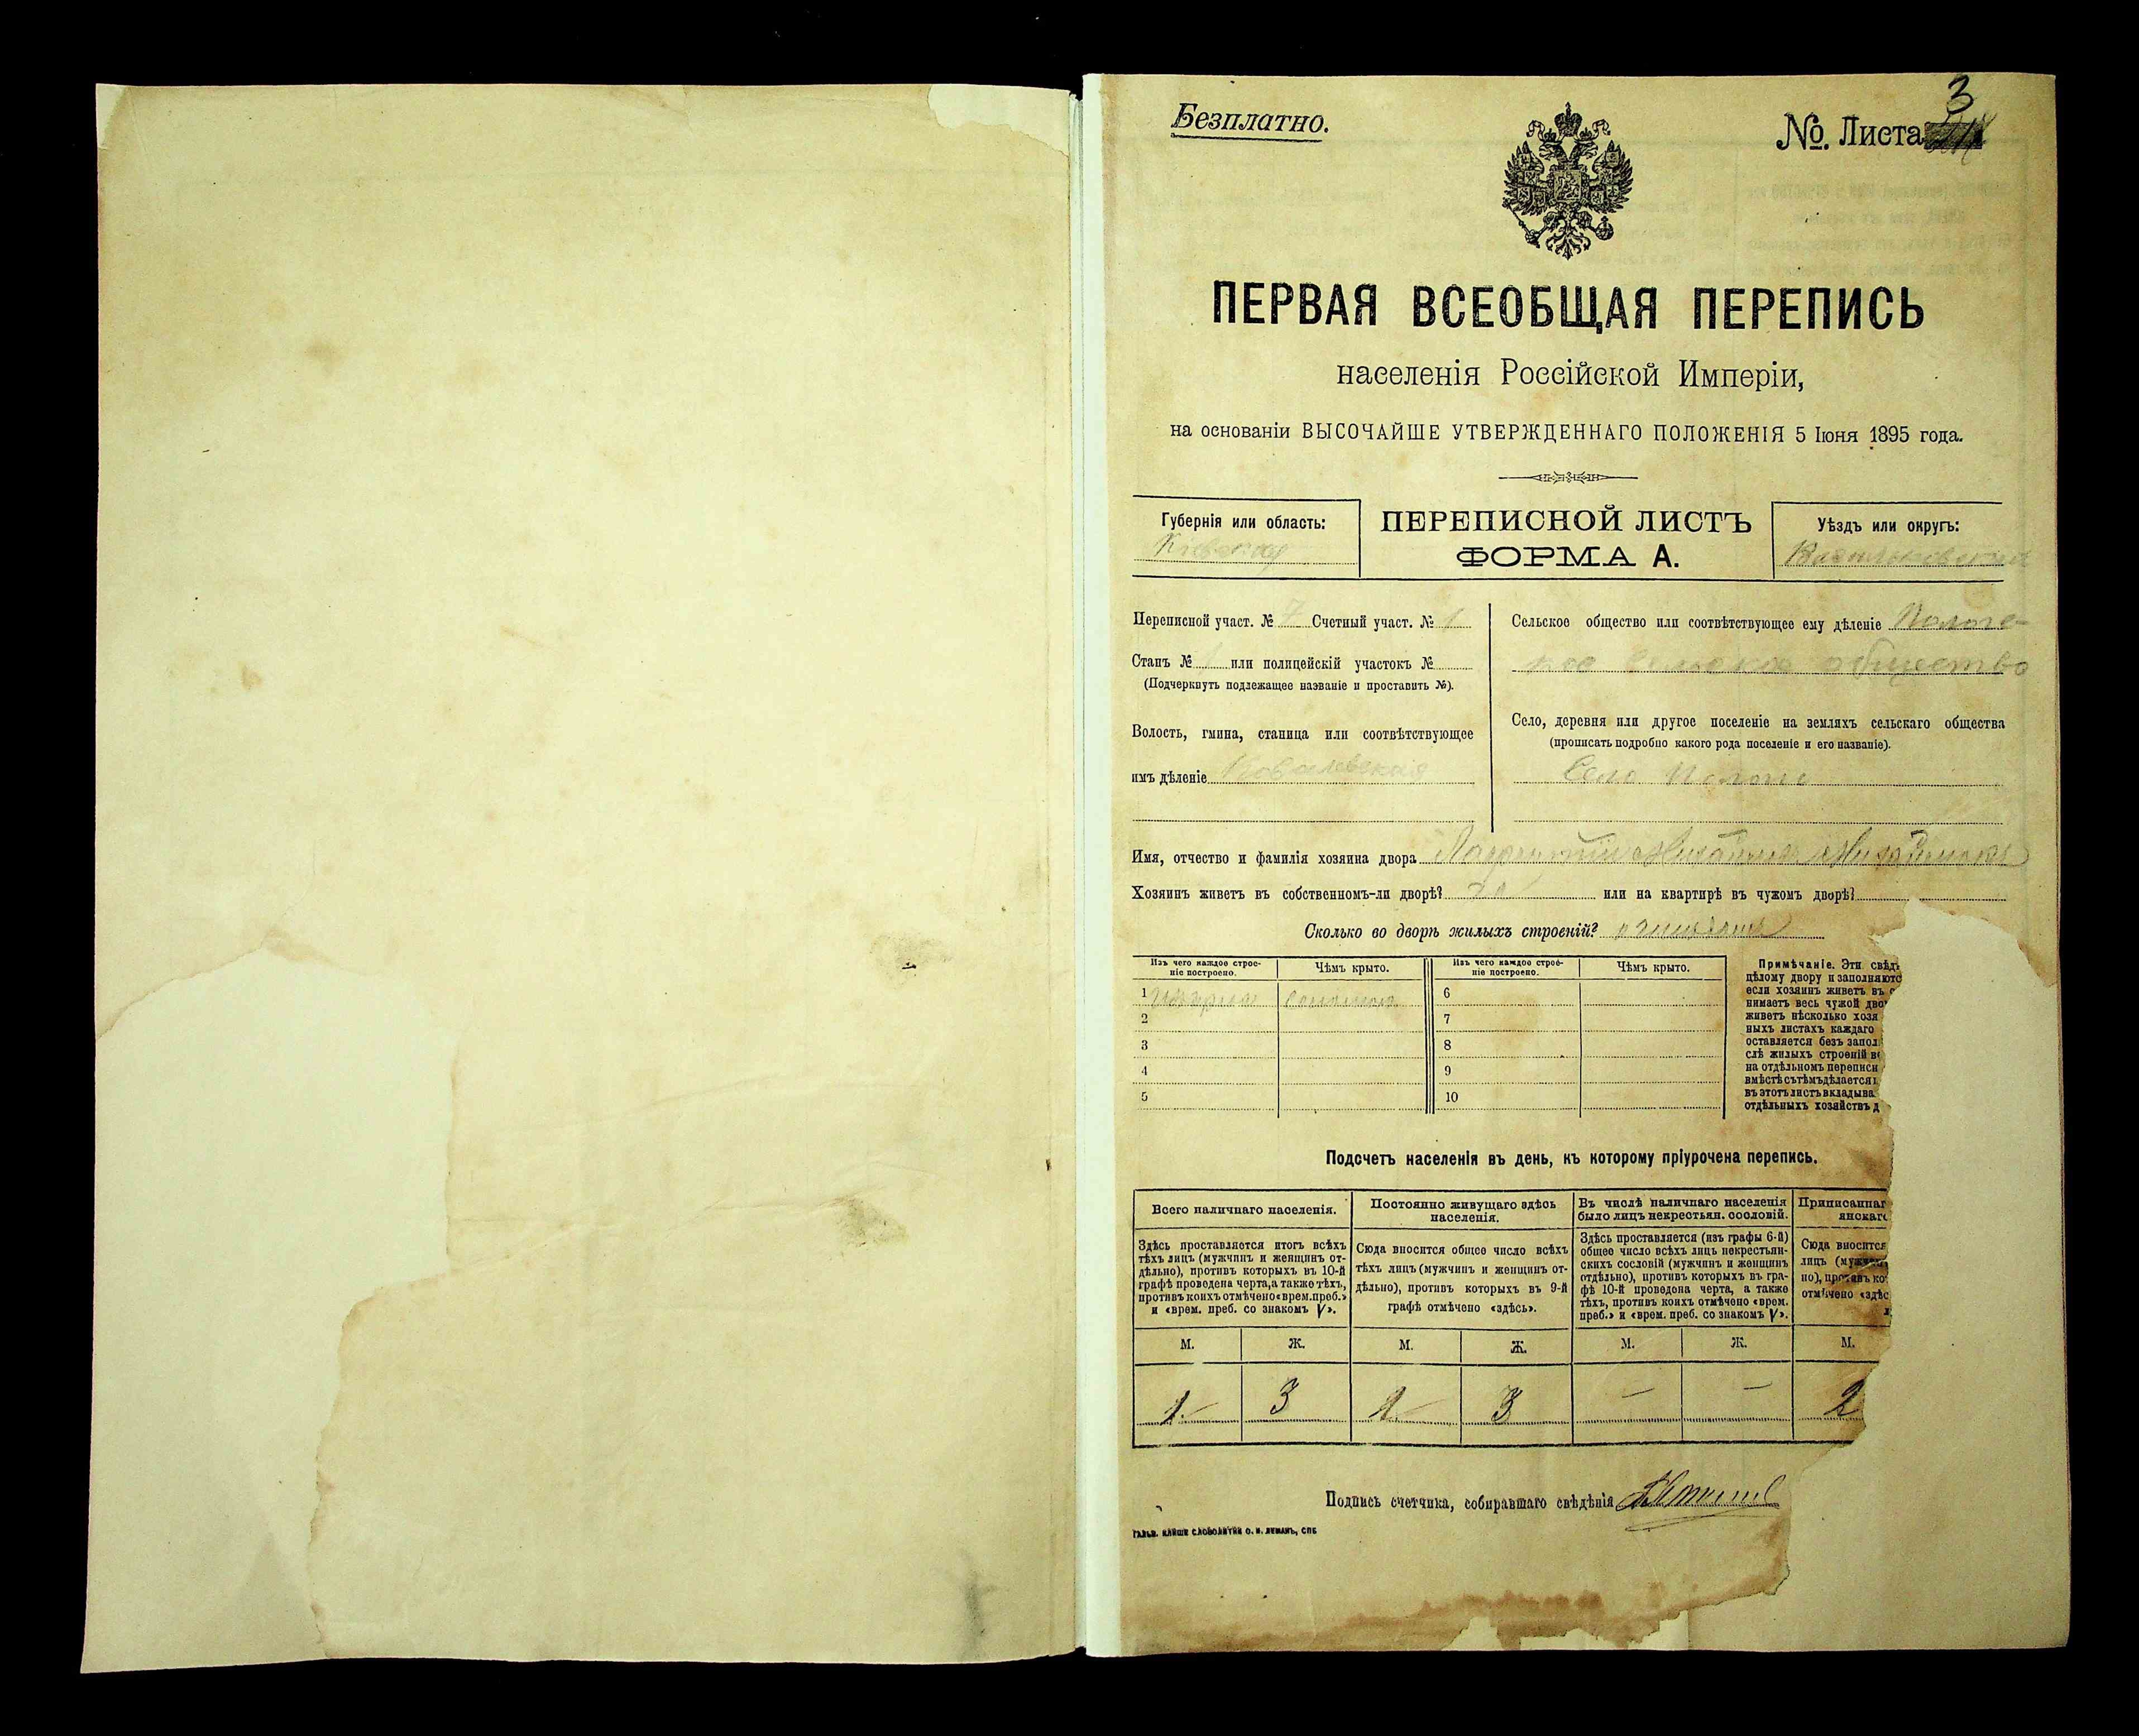 Безплатно.
№. Листа 3
ПЕРВАЯ ВСЕОБЩАЯ ПЕРЕПИСЬ
населенія Россійской Имперіи,
на основаніи ВЫСОЧАЙШЕ УТВЕРЖДЕННАГО ПОЛОЖЕНІЯ 5 Іюня 1895 года.
Губернія или область:
Кіевская
ПЕРЕПИСНОЙ ЛИСТЪ
ФОРМА А.
Уѣздъ или округъ:
Васильковскій
Переписной участ. № 7 Счетный участ. № 1
Станъ № или полицейскій участокъ №
(Подчеркнуть подлежащее названіе и проставить №).
Волость, гмина, станица или соотвѣтствующее
имъ дѣленіе Ковалевская
Сельское общество или соотвѣтствующее ему дѣленіе
общество
Село, деревня или другое поселеніе на земляхъ сельскаго общества
(прописать подробно какого рода поселеніе и его названіе).
Село
Имя, отчество и фамилія хозяина двора
Хозяинъ живетъ въ собственномъ-ли дворѣ? да или на квартирѣ въ чужомъ дворѣ?
Сколько во дворѣ жилыхъ строеній?
Изъ чего каждое строе-
ніе построено.
Чѣмъ крыто.
Изъ чего каждое строе-
ніе построено.
Чѣмъ крыто.
1 соломою 6
2 7
3 8
4 9
5 10
Примѣчаніе. Эти свѣд
цѣлому двору и заполняютс
если хозяинъ живетъ въ с
нимаетъ весь чужой дво
живетъ нѣсколько хозя
ныхъ листахъ каждаго
оставляется безъ запол
слѣ жилыхъ строеній в
на отдѣльномъ переписн
вмѣстѣ съ тѣмъ дѣлается
въ этотъ листъ вкладыва
отдѣльныхъ хозяйствъ д
Подсчетъ населенія въ день, къ которому пріурочена перепись.
Всего наличнаго населенія.
Здѣсь проставляется итогъ всѣхъ
тѣхъ лицъ (мужчинъ и женщинъ от-
дѣльно), противъ которыхъ въ 10-й
графѣ проведена черта, а также тѣхъ,
противъ коихъ отмѣчено «врем. преб.»
и «врем. преб. со знакомъ V».
М. Ж.
1 3
Постоянно живущаго здѣсь
населенія.
Сюда вносится общее число всѣхъ
тѣхъ лицъ (мужчинъ и женщинъ от-
дѣльно), противъ которыхъ въ 9-й
графѣ отмѣчено «здѣсь».
М. Ж.
1 3
Въ числѣ наличнаго населенія
было лицъ некрестьян. сословій.
Здѣсь проставляется (изъ графы 6-й)
общее число всѣхъ лицъ некрестьян-
скихъ сословій (мужчинъ и женщинъ
отдѣльно), противъ которыхъ въ гра-
фѣ 10-й проведена черта, а также
тѣхъ, противъ коихъ отмѣчено «врем.
преб.» и «врем. преб. со знакомъ V».
М. Ж.
— —
Приписаннаг
янскаг
Сюда вносится
лицъ (мужчин
но), противъ ко
отмѣчено «здѣс
М.
2
Подпись счетчика, собиравшаго свѣдѣнія